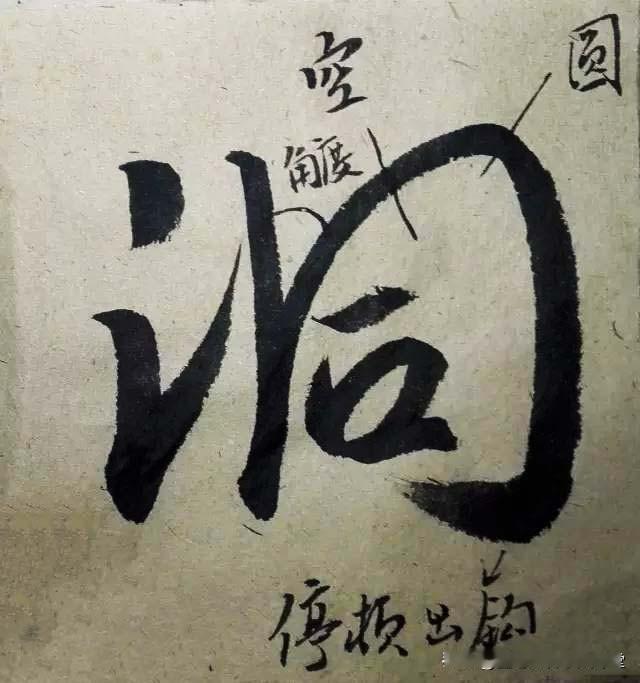 空
圆
角度
洞
停顿出钩